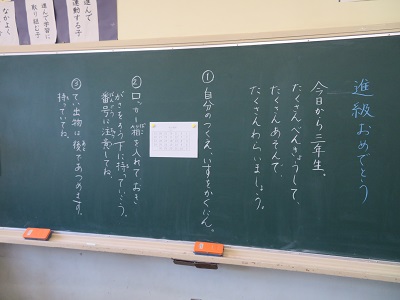 進級おめでとう
今日から三年生。
たくさんべんきょうして、
たくさんあそんで、
たくさんわらいましょう。
①自分のつくえ、いすをかくにん。
②ロッカーに箱を入れておき
番号に注意してね。
③てい出物は後であつめます。
持っていてね。
進んで
運動する子
進んで学習に
取り組む子
なかよく